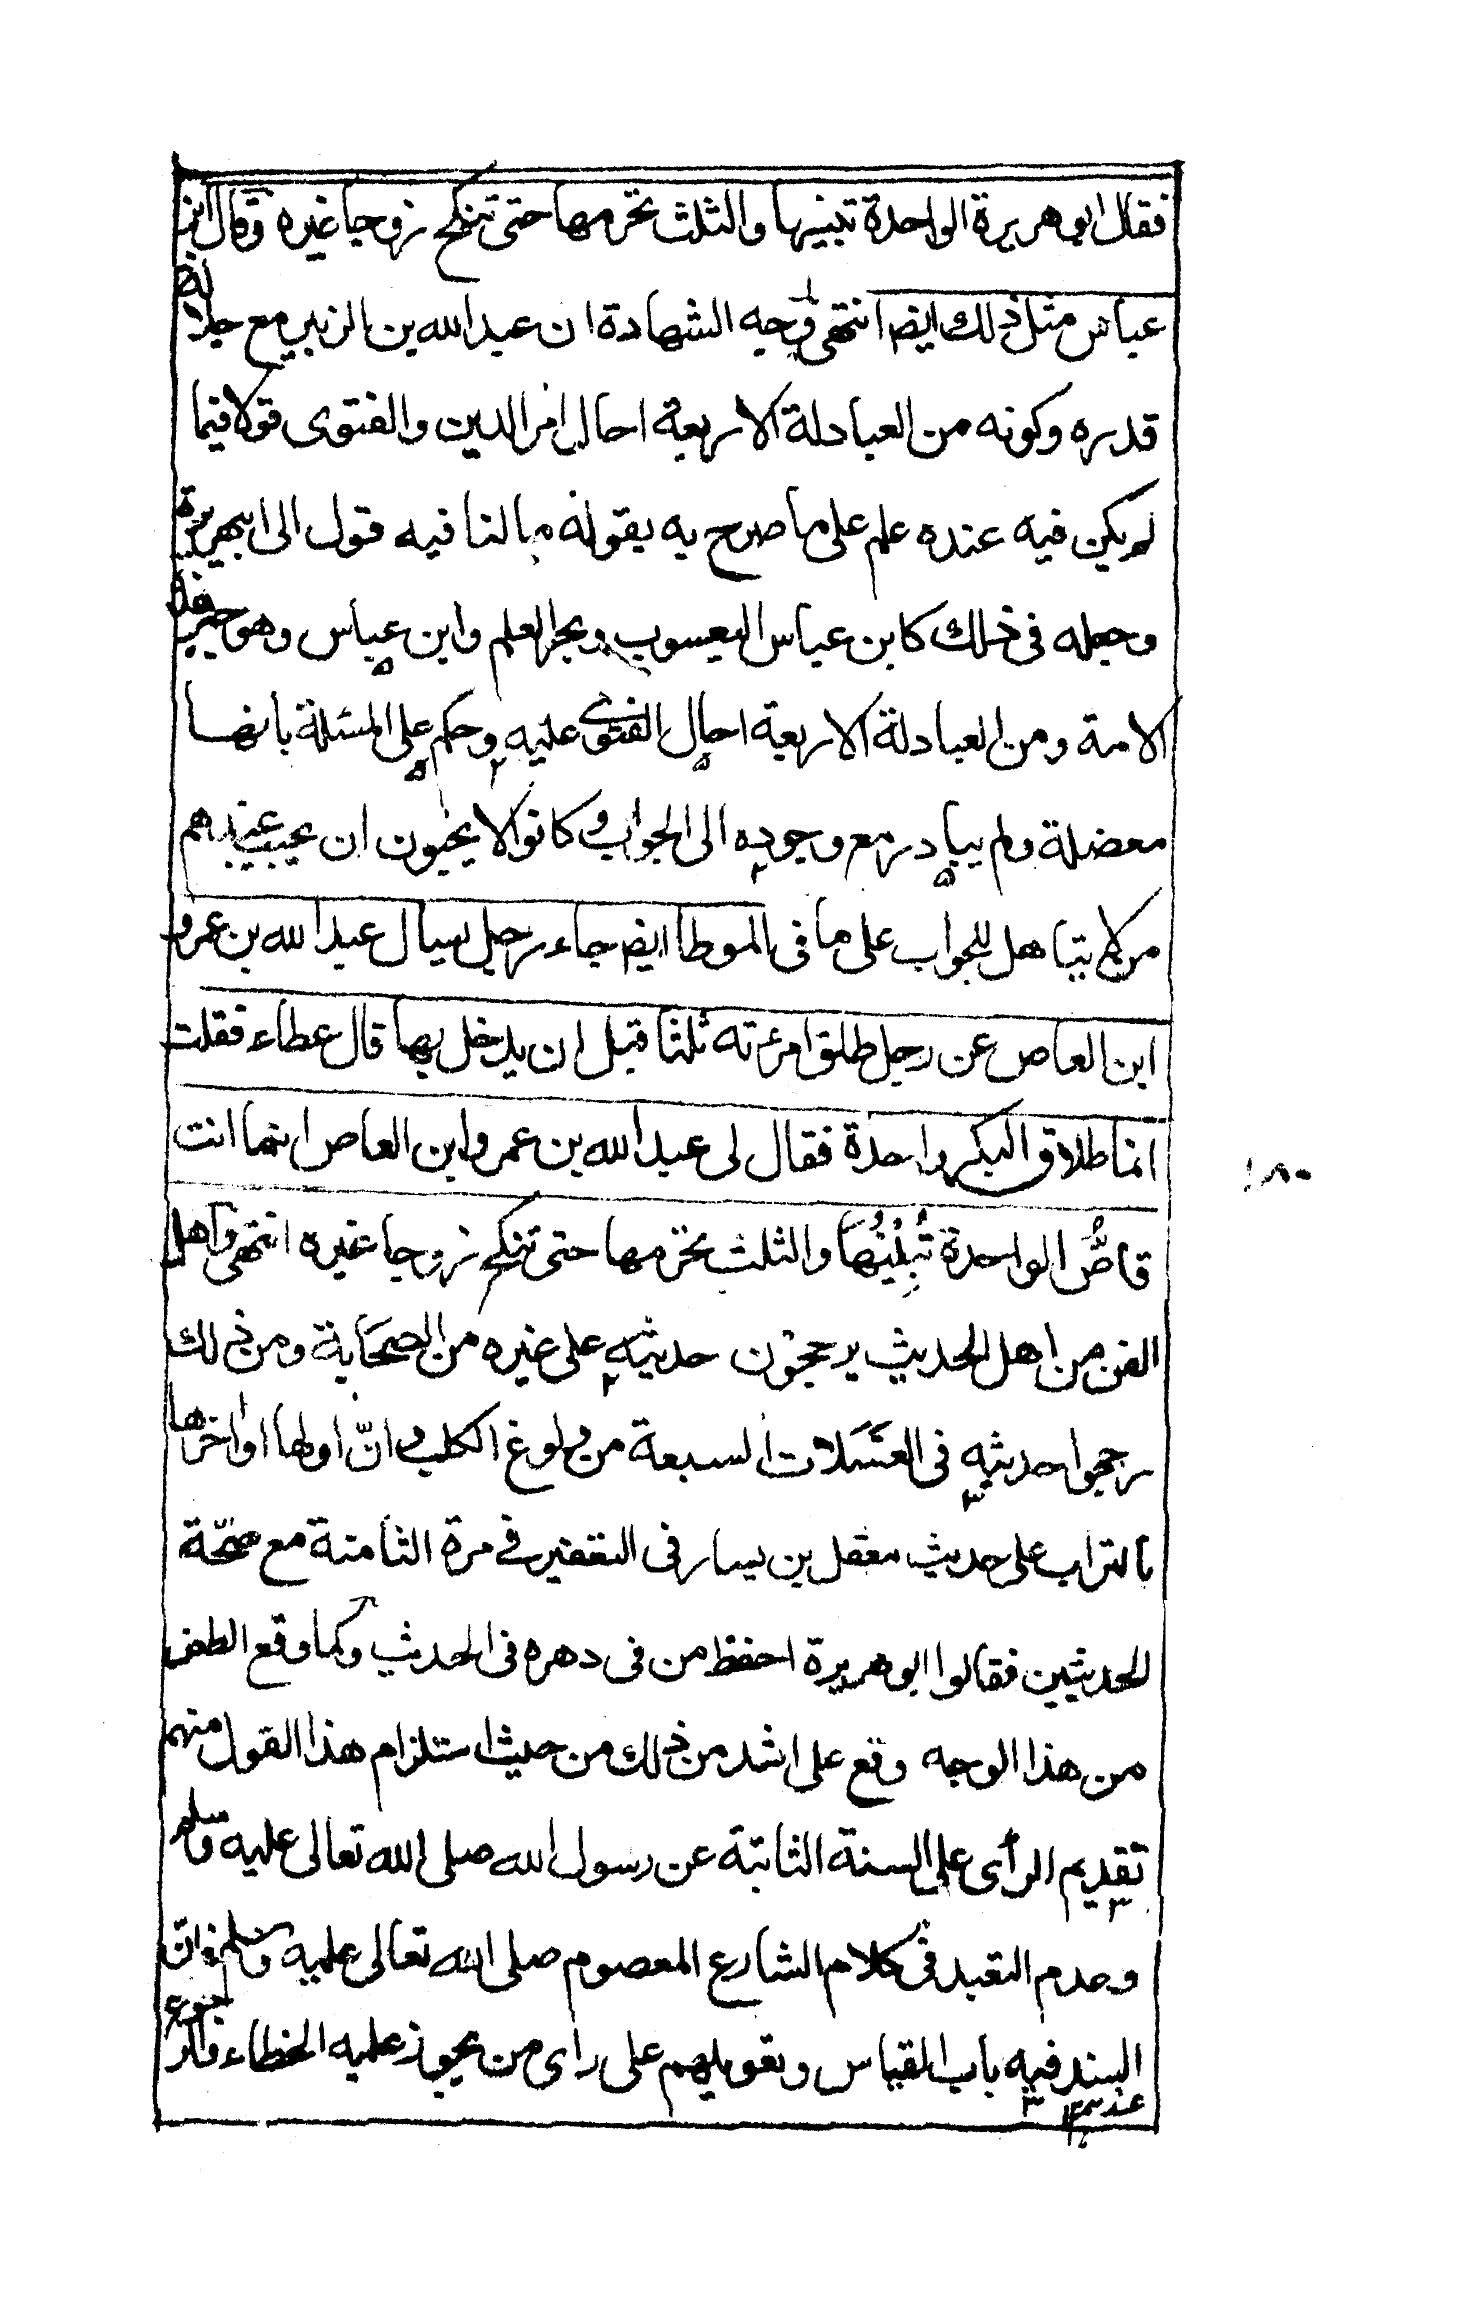 فقال ابو هريرة الواحدة تبينها والثلث تحرمها حتى تنكح زوجا غيره وقال ابن
عباس مثل ذلك ايضا انتهى وجه الشهادة ان عبد الله بن الزبير مع جلالة
قدره وكونه من العبادلة الاربعة احال امر الدين والفتوى قولا فيما
لم يكن فيه عنده علم على ما صرح به بقوله ما لنا فيه قول الى ابي هريرة
وجعله فى ذلك كابن عباس اليعسوب وبحر العلم وابن عباس وهو حبر هذه
الامة ومن العبادلة الاربعة احال الفتوى عليه وحكم على المسئلة بانها
معضلة ولم يبادر مع وجوده الى الجواب وكانوا لا يحبون ان يجيب عندهم
من لا يتاهل للجواب على ما فى الموطا ايضا جاء رجل يسال عبد الله بن عمرو
ابن العاص عن رجل طلق امرءته ثلثا قبل ان يدخل بها قال عطاء فقلت
انما طلاق البكر واحدة فقال لى عبد الله بن عمرو ابن العاص انما انت
قاصٌّ الواحدة تُبِيْنُهَا والثلث تحرمها حتى تنكح زوجا غيره انتهى واهل
الفن من اهل الحديث يرجحون حديثه على غيره من الصحابة ومن ذلك
رجحوا حديثه فى الغسلات السبعة من ولوغ الكلب وانّ اولها او اخرها
بالتراب على حديث معقل بن يسار فى التعفير فى مرة الثامنة مع صحّة
الحديثين فقالوا ابو هريرة احفظ من فى دهره فى الحديث وكما وقع الطعن
من هذا الوجه وقع على اشد من ذلك من حيث استلزام هذا القول منهم
تقديم الرأى على السنة الثابتة عن رسول الله صلى الله تعالى عليه وسلم
وعدم التقيد فى كلام الشارع المعصوم صلى الله تعالى عليه وسلم فانّ
السند فيه باب القياس وتعويلهم على راى من يجوز عليه الخطاء والرجوع
عندهم
١٨٠